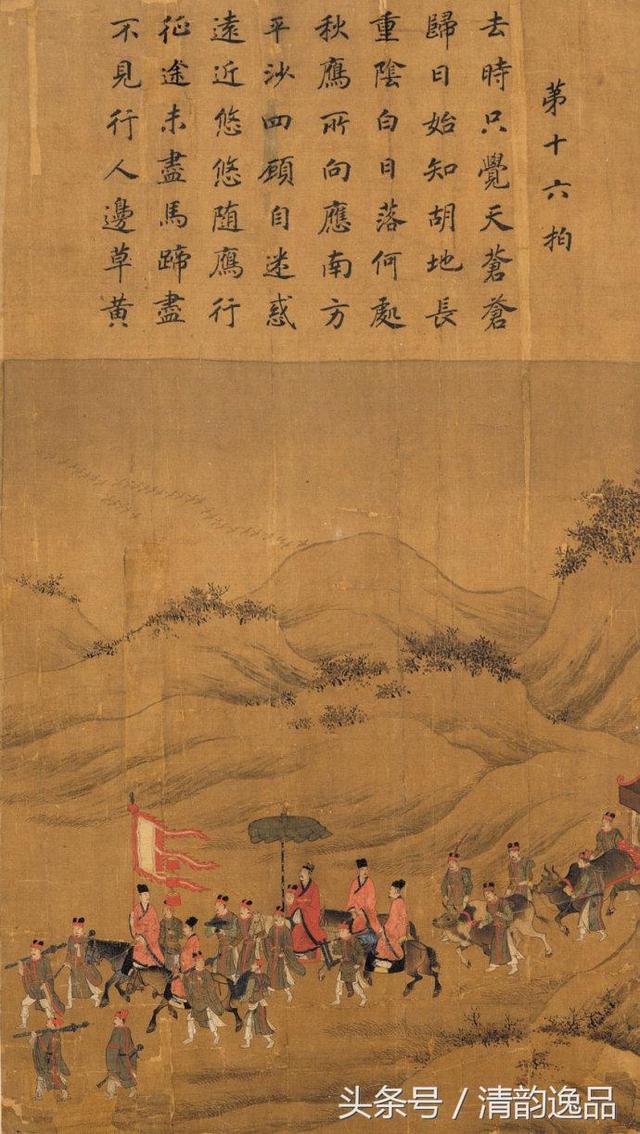 第十六拍
去時只覺天蒼蒼
歸日始知胡地長
重陰白日落何處
秋鴈所向應南方
平沙四顧自迷惑
遠近悠悠随鴈行
征途未盡馬蹄盡
不見行人邊草黃
头条号 / 清韵逸品